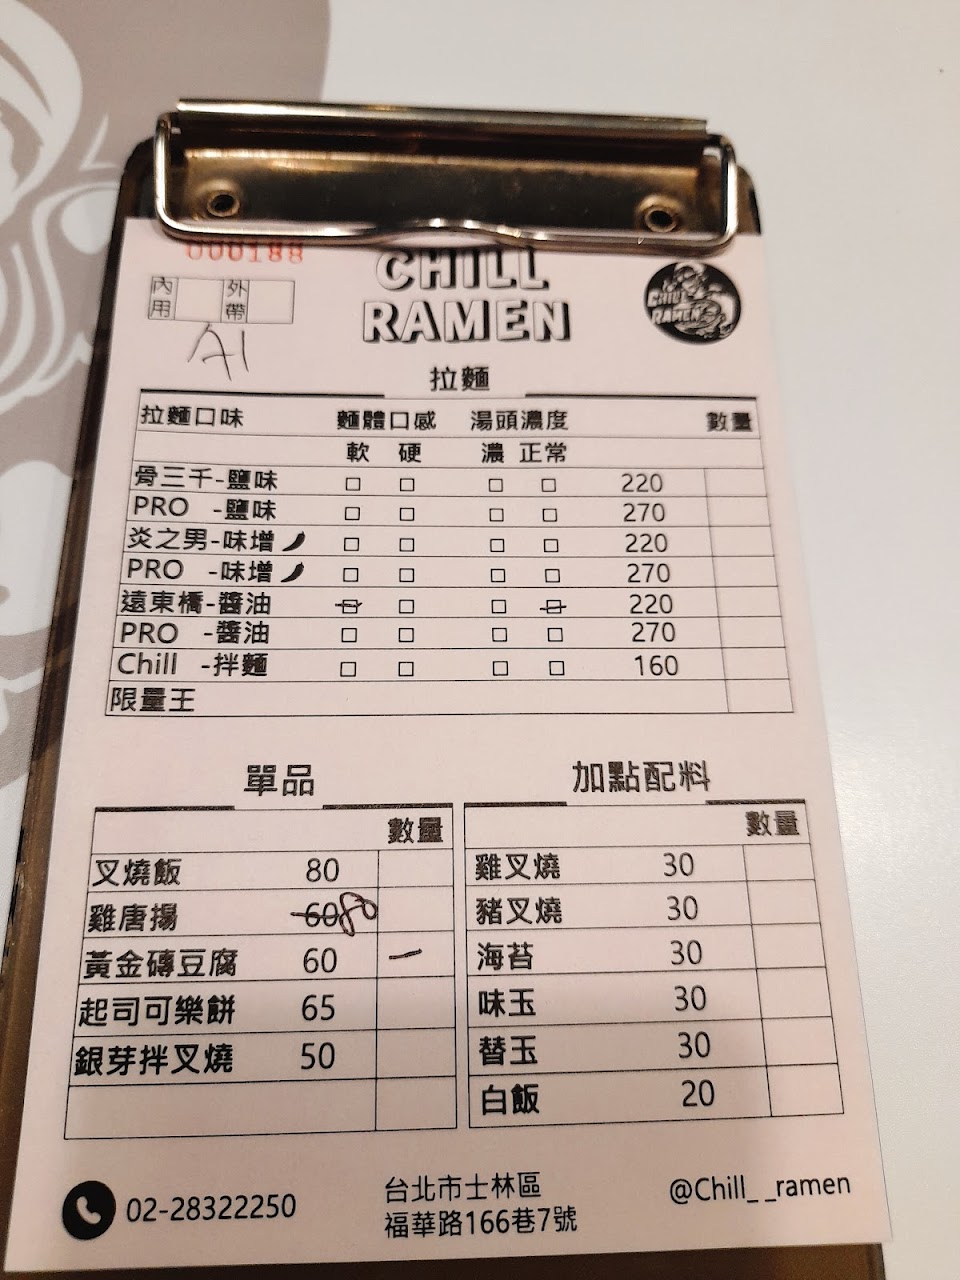 000188
CHILL
RAMEN
CHILL
RAMEN
內用 外帶
A1
拉麵
拉麵口味 麵體口感 湯頭濃度 數量
軟 硬 濃 正常
骨三千-鹽味 □ □ □ □ 220
PRO -鹽味 □ □ □ □ 270
炎之男-味增 □ □ □ □ 220
PRO -味增 □ □ □ □ 270
遠東橋-醬油 □ □ □ □ 220
PRO -醬油 □ □ □ □ 270
Chill -拌麵 □ □ □ □ 160
限量王
單品
數量
叉燒飯 80
雞唐揚 60 80
黃金磚豆腐 60 一
起司可樂餅 65
銀芽拌叉燒 50
加點配料
數量
雞叉燒 30
豬叉燒 30
海苔 30
味玉 30
替玉 30
白飯 20
02-28322250
台北市士林區
福華路166巷7號
@Chill_ _ramen